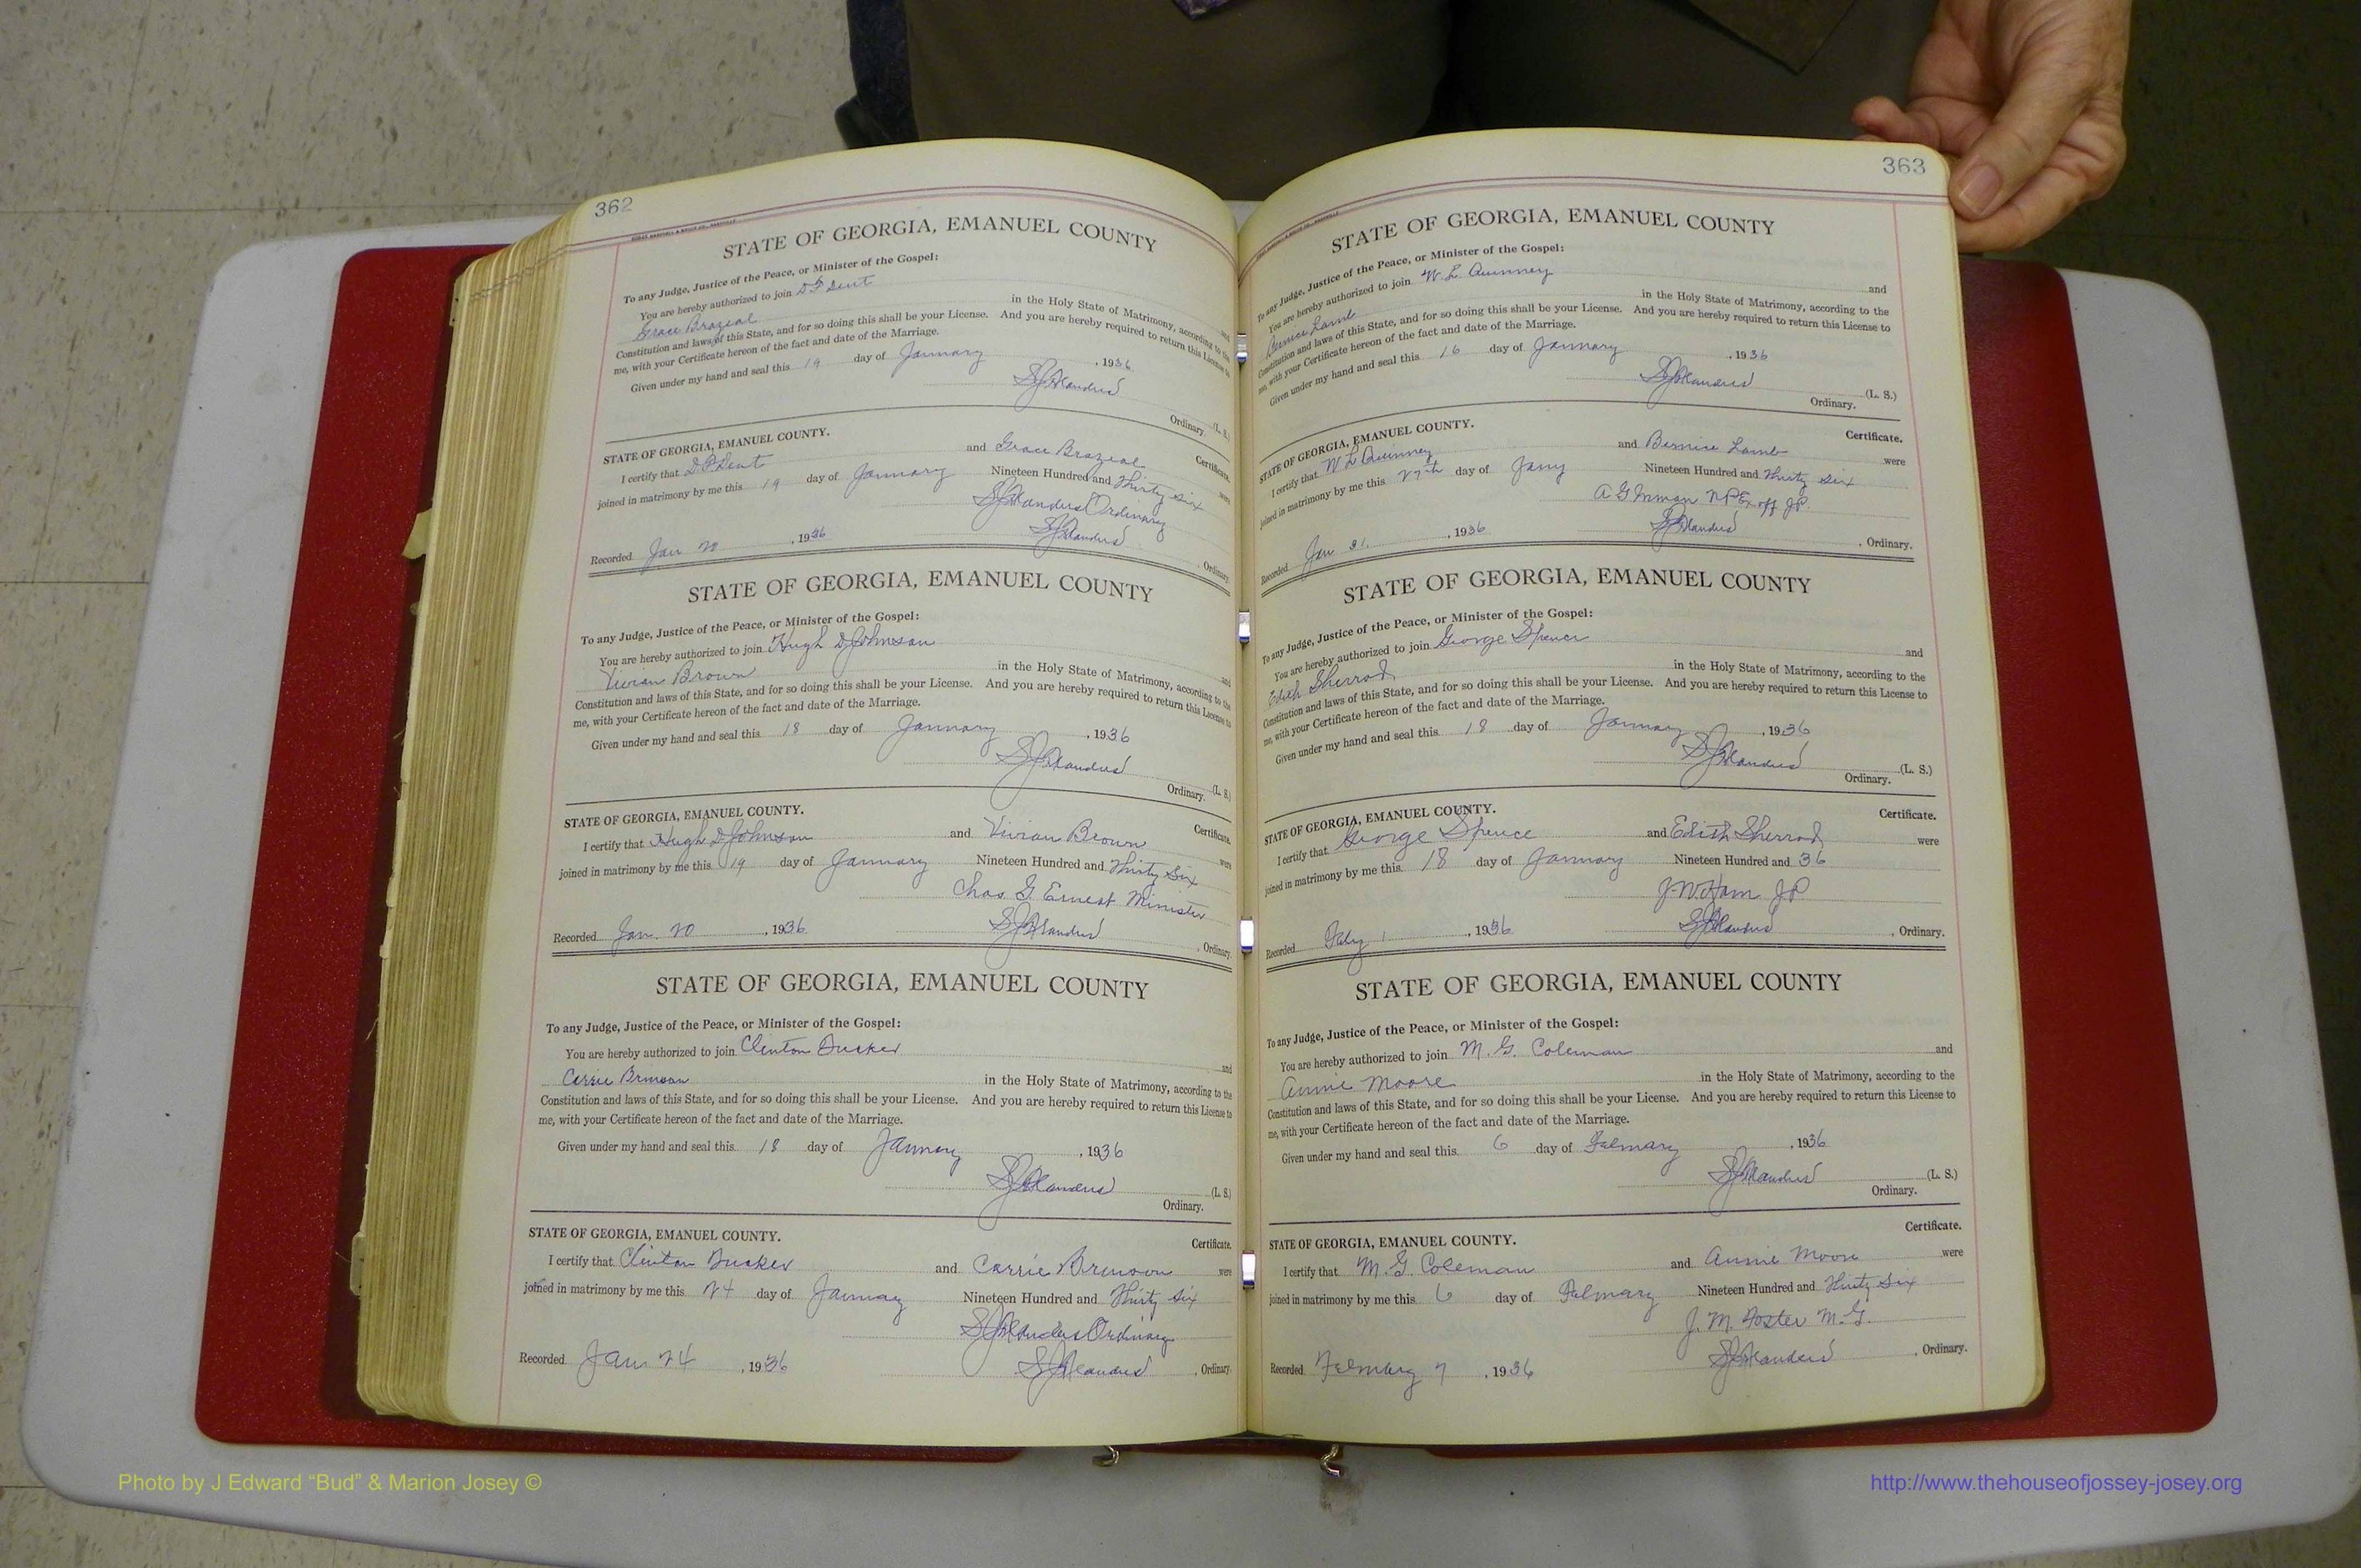 362
STATE OF GEORGIA, EMANUEL COUNTY
To any Judge, Justice of the Peace, or Minister of the Gospel:
You are hereby authorized to join D P Dent and
Grace Brazeal in the Holy State of Matrimony, according to the
Constitution and laws of this State, and for so doing this shall be your License. And you are hereby required to return this License to
me, with your Certificate hereon of the fact and date of the Marriage.
Given under my hand and seal this 19 day of January, 1936
(L. S.)
Ordinary.
STATE OF GEORGIA, EMANUEL COUNTY. Certificate.
I certify that D P Dent and Grace Brazeal were
joined in matrimony by me this 19 day of January Nineteen Hundred and Thirty six
Ordinary
Recorded Jan 20, 1936, Ordinary.
STATE OF GEORGIA, EMANUEL COUNTY
To any Judge, Justice of the Peace, or Minister of the Gospel:
You are hereby authorized to join Hugh D Johnson and
Vivian Brown in the Holy State of Matrimony, according to the
Constitution and laws of this State, and for so doing this shall be your License. And you are hereby required to return this License to
me, with your Certificate hereon of the fact and date of the Marriage.
Given under my hand and seal this 18 day of January, 1936
(L. S.)
Ordinary.
STATE OF GEORGIA, EMANUEL COUNTY. Certificate.
I certify that Hugh D Johnson and Vivian Brown were
joined in matrimony by me this 19 day of January Nineteen Hundred and Thirty Six
Chas. G. Ernest Minister
Recorded Jan. 20, 1936, Ordinary.
STATE OF GEORGIA, EMANUEL COUNTY
To any Judge, Justice of the Peace, or Minister of the Gospel:
You are hereby authorized to join Clinton and
Carrie Brinson in the Holy State of Matrimony, according to the
Constitution and laws of this State, and for so doing this shall be your License. And you are hereby required to return this License to
me, with your Certificate hereon of the fact and date of the Marriage.
Given under my hand and seal this 18 day of January, 1936
(L. S.)
Ordinary.
STATE OF GEORGIA, EMANUEL COUNTY. Certificate.
I certify that Clinton and Carrie Brinson were
joined in matrimony by me this 24 day of January Nineteen Hundred and Thirty six
Ordinary
Recorded Jan 24, 1936, Ordinary.
363
STATE OF GEORGIA, EMANUEL COUNTY
To any Judge, Justice of the Peace, or Minister of the Gospel:
You are hereby authorized to join W. L. Quinney and
Bernice Lamb in the Holy State of Matrimony, according to the
Constitution and laws of this State, and for so doing this shall be your License. And you are hereby required to return this License to
me, with your Certificate hereon of the fact and date of the Marriage.
Given under my hand and seal this 16 day of January, 1936
(L. S.)
Ordinary.
STATE OF GEORGIA, EMANUEL COUNTY. Certificate.
I certify that W L Quinney and Bernice Lamb were
joined in matrimony by me this 27th day of Jany Nineteen Hundred and Thirty six
A G Inman N P Ex off J P.
Recorded Jan 31., 1936, Ordinary.
STATE OF GEORGIA, EMANUEL COUNTY
To any Judge, Justice of the Peace, or Minister of the Gospel:
You are hereby authorized to join George Spence and
Edith Sherrod in the Holy State of Matrimony, according to the
Constitution and laws of this State, and for so doing this shall be your License. And you are hereby required to return this License to
me, with your Certificate hereon of the fact and date of the Marriage.
Given under my hand and seal this 18 day of January, 1936
(L. S.)
Ordinary.
STATE OF GEORGIA, EMANUEL COUNTY. Certificate.
I certify that George Spence and Edith Sherrod were
joined in matrimony by me this 18 day of January Nineteen Hundred and 36
J. W. Ham J P
Recorded Feby 1, 1936, Ordinary.
STATE OF GEORGIA, EMANUEL COUNTY
To any Judge, Justice of the Peace, or Minister of the Gospel:
You are hereby authorized to join M. G. Coleman and
Annie Moore in the Holy State of Matrimony, according to the
Constitution and laws of this State, and for so doing this shall be your License. And you are hereby required to return this License to
me, with your Certificate hereon of the fact and date of the Marriage.
Given under my hand and seal this 6 day of February, 1936
(L. S.)
Ordinary.
STATE OF GEORGIA, EMANUEL COUNTY. Certificate.
I certify that M. G. Coleman and Annie Moore were
joined in matrimony by me this 6 day of February Nineteen Hundred and Thirty Six
J. M. Foster M. G.
Recorded February 7, 1936, Ordinary.
Photo by J Edward “Bud” & Marion Josey ©
http://www.thehouseofjossey-josey.org